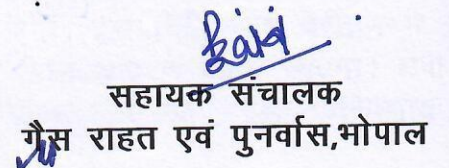 सहायक संचालक
गैस राहत एवं पुनर्वास,भोपाल